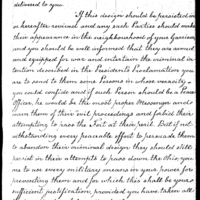 delivered to you.
"If this design should be persisted in
or hereafter revived and any such Parties should make
their appearance in the neighbourhood of your garrison
and you should be well informed that they are armed
and equipped for war and entertain the criminal in-
tention described in the Presidents Proclamation you
are to send to them some person in whose veracity
you could confide and if such Person should be a Peace
Officer, he would be the most proper Messenger and
warn them of their evil proceedings and forbid their
attempting to pass the Fort at their peril. But if not-
withstanding every peaceable effort to persuade them
to abandon their criminal design they should still
persist in their attempts to pass down the Ohio, you
are to use every military means in your power for
preventing them and for which this shall be your
sufficient justification, provided you have taken all